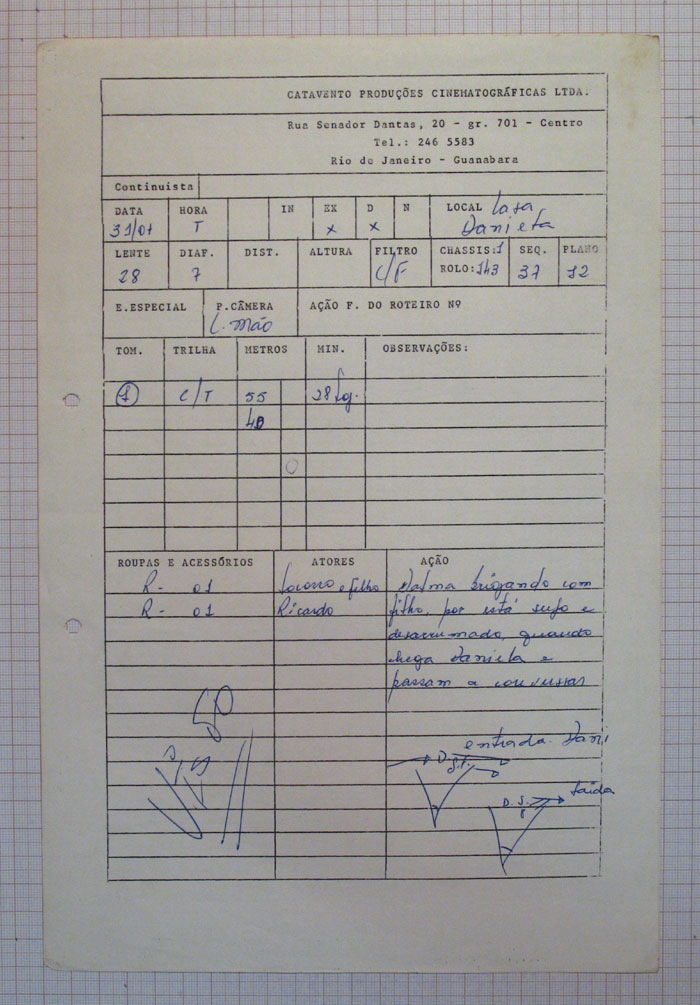 CATAVENTO PRODUÇÕES CINEMATOGRÁFICAS LTDA.
Rua Senador Dantas, 20 - gr. 701 - Centro
Tel.: 246 5583
Rio de Janeiro - Guanabara
Continuista
DATA HORA IN EX D N LOCAL Casa
31/01 T x x Daniela
LENTE DIAF. DIST. ALTURA FILTRO CHASSIS:1 SEQ. PLANO
28 7 C/F ROLO:143 37 12
E.ESPECIAL P.CÂMERA AÇÃO F. DO ROTEIRO Nº
C. mão
TOM. TRILHA METROS MIN. OBSERVAÇÕES:
1 C/T 55 28
40
ROUPAS E ACESSÓRIOS ATORES AÇÃO
R - 01 Socorro e filho Dalma brigando com
R - 01 Ricardo filho, por está sujo e
desarrumado, quando
chega Daniela e
passam a conversar
entrada Dani
D.
S.F.
D. S. saída
F